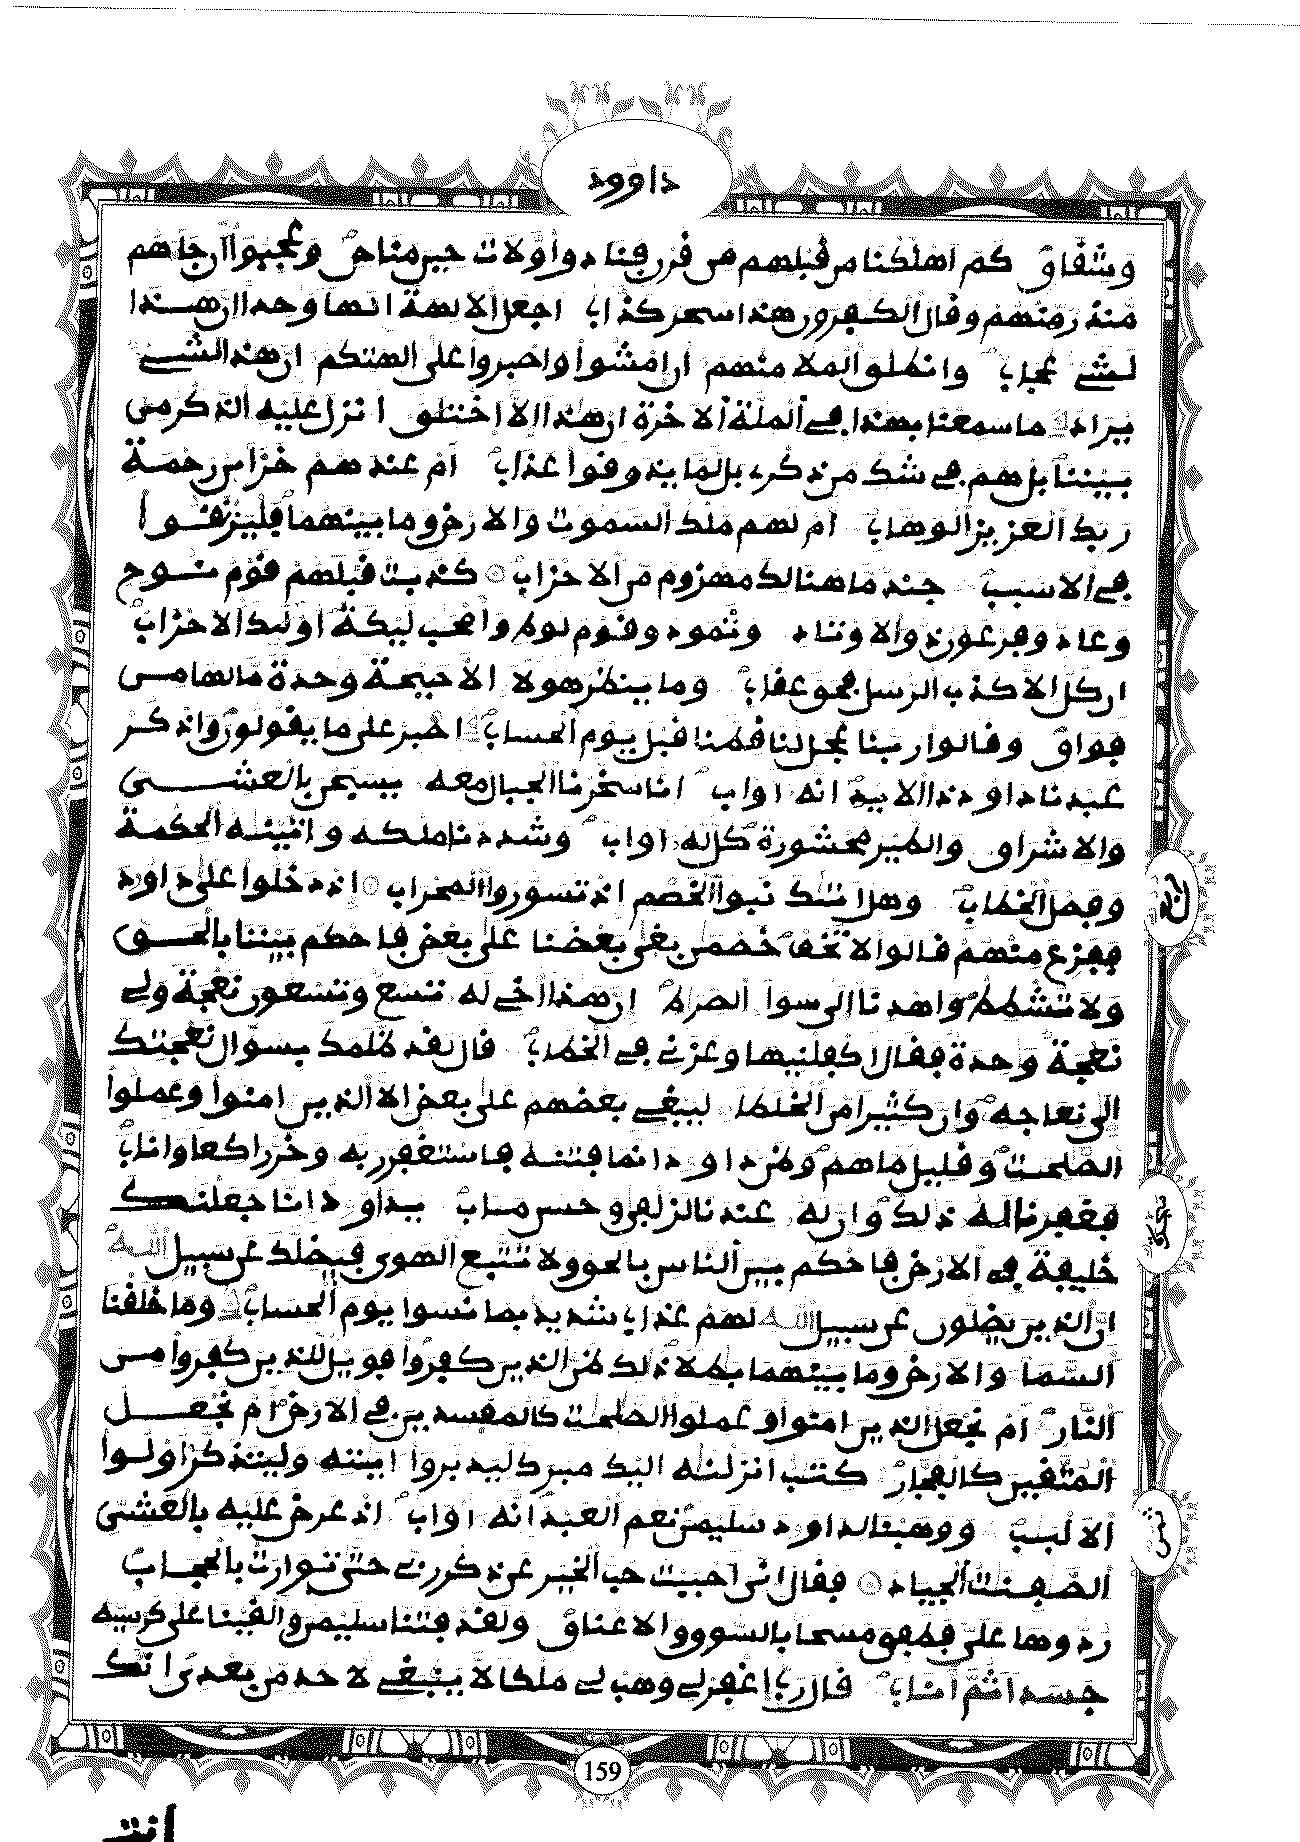 داوود
وشقاق كم اهلكنا من قبلهم من قرن فنادوا ولات حين مناص وعجبوا ان جاهم
منذر منهم وقال الكفرون هذا سحر كذاب اجعل الالهة الها وحدا ان هـــذا
لشے عجاب وانطلق الملا منهم ان امشوا واصبروا على الهتكم ان هذا لشـے
يراد ما سمعنا بهذا في الملة الاخرة ان هذا الا اختلق انزل عليه الذكر من
بيننا بل هم في شك من ذكرے بل لما يذوقوا عذاب ام عندهم خزاين رحمة
ربك العزيز الوهاب ام لهم ملك السموت والارض وما بينهما فليرتقـــوا
في الاسبب جند ما هنالك مهزوم من الاحزاب كذبت قبلهم قوم نـــوح
وعاد وفرعون ذو الاوتاد وثمود وقوم لوط واصحب ليكة اوليك الاحزاب
ان كل الا كذب الرسل فحق عقاب وما ينظر هولا الا صيحة وحدة ما لها مـن
فواق وقالوا ربنا عجل لنا قطنا قبل يوم الحساب اصبر على ما يقولون واذكـر
عبدنا داود ذا الايد انه اواب انا سخرنا الجبال معه يسبحن بالعشـــي
والاشراق والطير محشورة كل له اواب وشددنا ملكه واتينه الحكمة
وفصل الخطاب وهل اتيك نبوا الخصم اذ تسوروا المحراب اذ دخلوا على داود
ففزع منهم قالوا لا تخف خصمن بغى بعضنا على بعض فاحكم بيننا بالحـق
ولا تشطط واهدنا الى سوا الصراط ان هذا اخے له تسع وتسعون نعجة ولے
نعجة وحدة فقال اكفلنيها وعزنے في الخطاب قال لقد ظلمك بسوال نعجتك
الى نعاجه وان كثيرا من الخلطا ليبغے بعضهم على بعض الا الذين امنوا وعملوا
الصلحت وقليل ما هم وظن داود انما فتنه فاستغفر ربه وخر راكعا واناب
فغفرنا له ذلك وان له عندنا لزلفى وحسن مـاب يـداود انا جعلنـك
خليفة في الارض فاحكم بين الناس بالحق ولا تتبع الهوى فيضلك عن سبيل اللـه
ان الذين يضلون عن سبيل اللـه لهم عذاب شديد بما نسوا يوم الحساب وما خلقنا
السما والارض وما بينهما بطلا ذلك ظن الذين كفروا فويل للذين كفروا مـن
النار ام نجعل الذين امنوا وعملوا الصلحت كالمفسدين في الارض ام نجعـــل
المتقين كالفجار كتب انزلنه اليك مبرك ليدبروا ايته وليتذكر اولـوا
الالبب ووهبنا لداود سليمن نعم العبد انه اواب اذ عرض عليه بالعشى
الصفنت الجياد فقال انى احببت حب الخير عن ذكر ربے حتى توارت بالحجـاب
ردوها على فطفق مسحا بالسوق والاعناق ولقد فتنا سليمن والقينا على كرسيه
جسدا ثم اناب قال رب اغفر لے وهب لے ملكا لا ينبغے لاحد من بعدى انـك
ثمن
159
انت